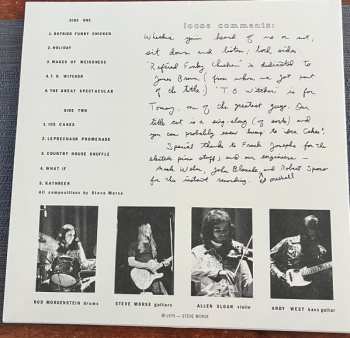 SIDE ONE
1. REFRIED FUNKY CHICKEN
2. HOLIDAY
3. MAKES OF WEIRDNESS
4. T.O. WITCHER
5. THE GREAT SPECTACULAR
SIDE TWO
1. ICE CAKES
2. LEPRECHAUN PROMENADE
3. COUNTRY HOUSE SHUFFLE
4. WHAT IF
5. KATHREEN
All compositions by Steve Morse
loose comments:
Whether you heard of me or not,
sit down and listen; both sides.
"Refried Funky Chicken" is dedicated to
James Brown (from whom we got part
of the title.) "T.O Witcher" is for
Tommy, one of the greatest guys. Our
title cut is a sing-along (of sorts) and
you can probably even bump to Ice Cakes!
Special thanks to Frank Josephs for the
electric piano stuff, and our engineers –
John Blanche, and Robert Spano
for the instant recording.
ROD MORGENSTEIN drums
STEVE MORSE guitars
ALLEN SLOAN violin
ANDY WEST bass guitar
©1975 — STEVE MORSE